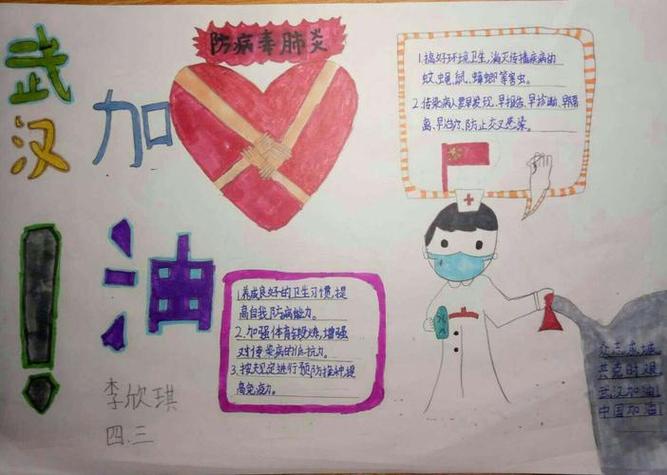 武汉加油!
防病毒肺炎
1.搞好环境卫生,消灭传播疾病的
蚊、蝇、鼠、蟑螂等害虫。
2.传染病人要早发现、早报告、早诊断、早隔
离、早治疗、防止交叉感染。
1.养成良好的卫生习惯,提
高自我防病能力。
2.加强体育锻炼,增强
对传染病的抵抗力。
3.按规定进行预防接种,提
高免疫力。
众志成城
共克时艰
武汉加油!
中国加油!
李欣琪
四.三